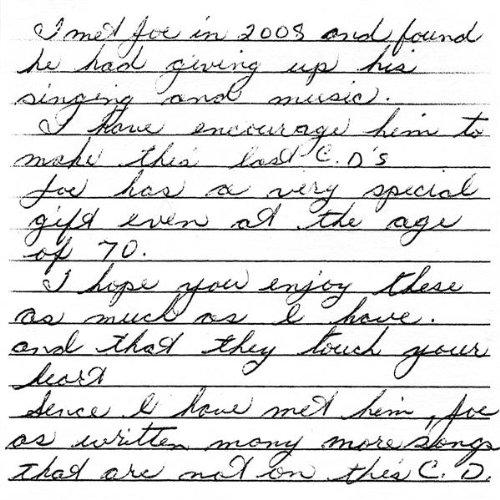 I met Joe in 2008 and found
he had giving up his
singing and music.
I have encourage him to
make this last C.D's
Joe has a very special
gift even at the age
of 70.
I hope you enjoy these
as much as I have.
and that they touch your
heart
Sence I have met him, Joe
as written many more songs
that are not on this C.D.